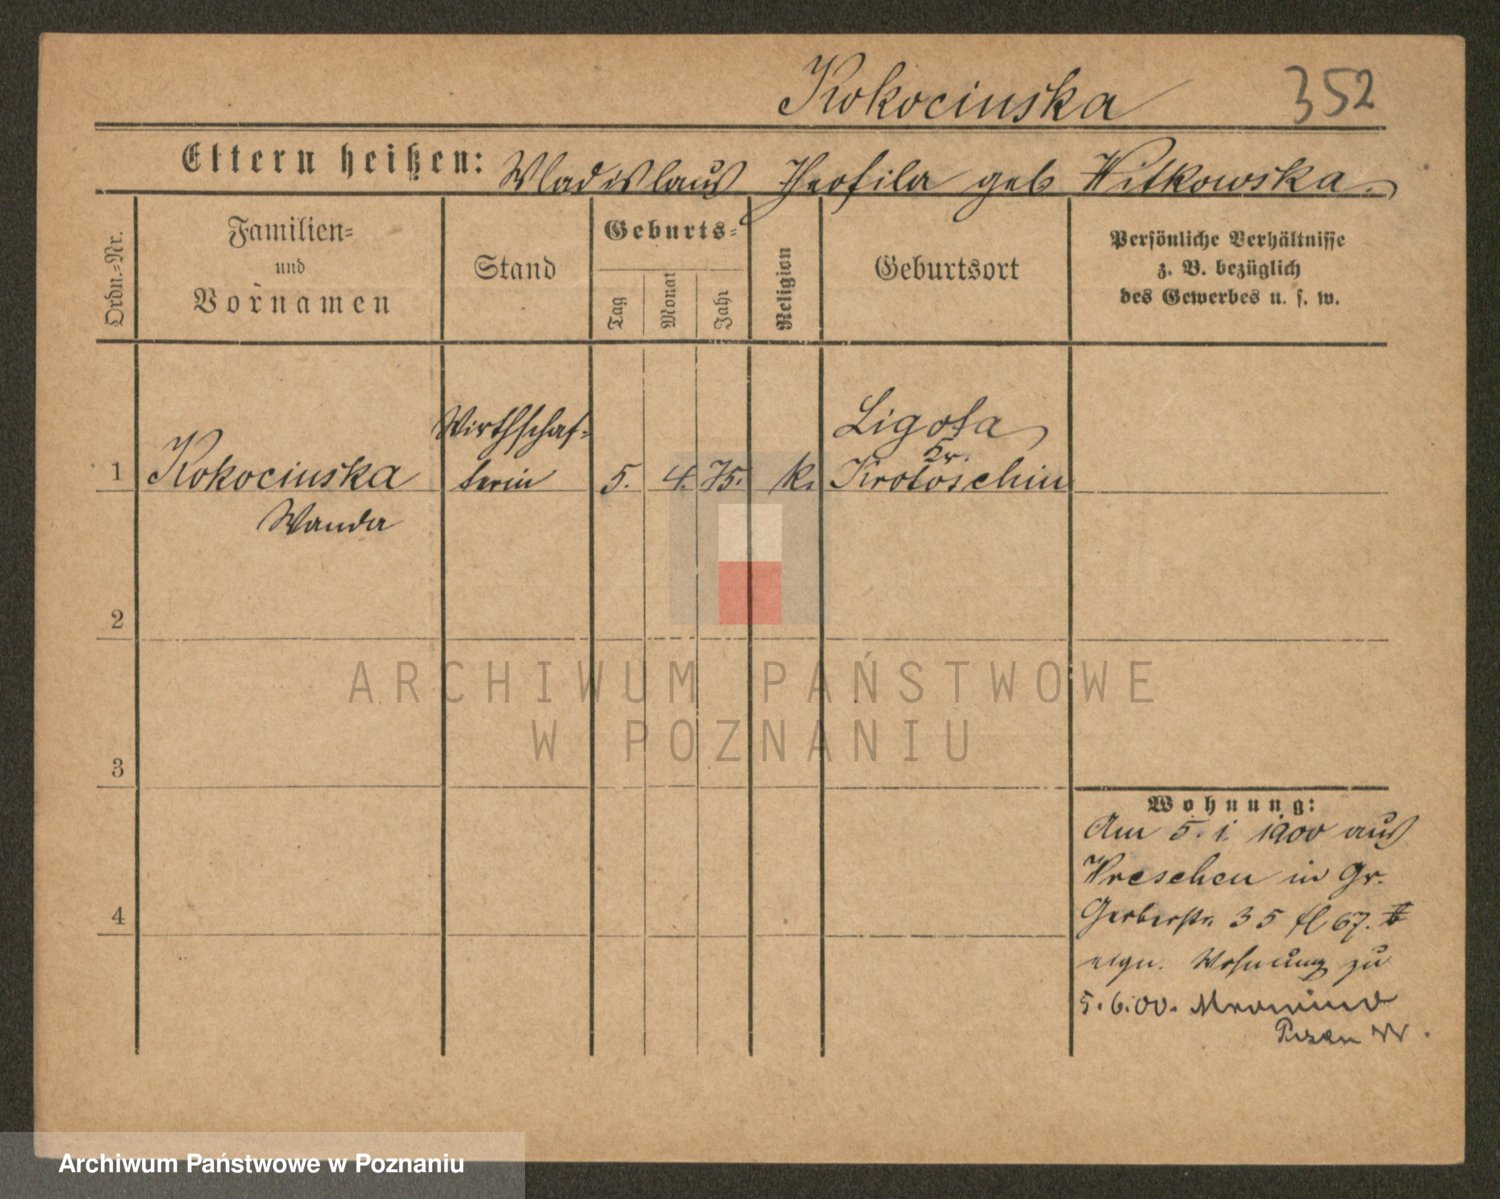 Kokocinska 352
Eltern heißen: Wladislaus Theofila geb Witkowska.
Ordn.=Nr.
Familien= und Vornamen
Stand
Geburts=
Tag
Monat
Jahr
Religion
Geburtsort
Persönliche Verhältnisse
z. B. bezüglich
des Gewerbes u. s. w.
Wirthschaf-
Ligota
Kr.
1 Kokocinska terin 5. 4. 75. k. Krotoschin
Wanda
2
ARCHIWUM PAŃSTWOWE
W POZNANIU
3
Wohnung:
Am 5. 1. 1900 aus
Wreschen in Gr.
4
Gerberstr. 35 fl 67.
eign. Wohnung zu
5.6.00.
Posen W.
Archiwum Państwowe w Poznaniu